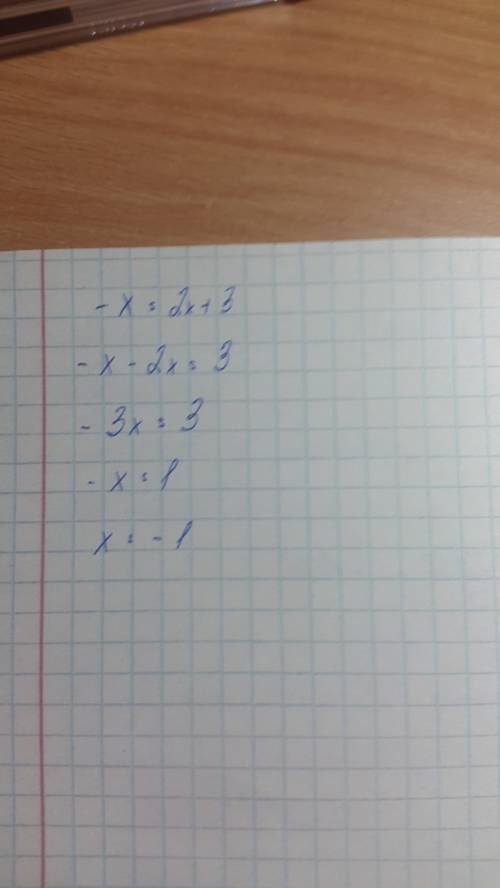 - x = 2x + 3
- x - 2x = 3
- 3x = 3
- x = 1
x = - 1